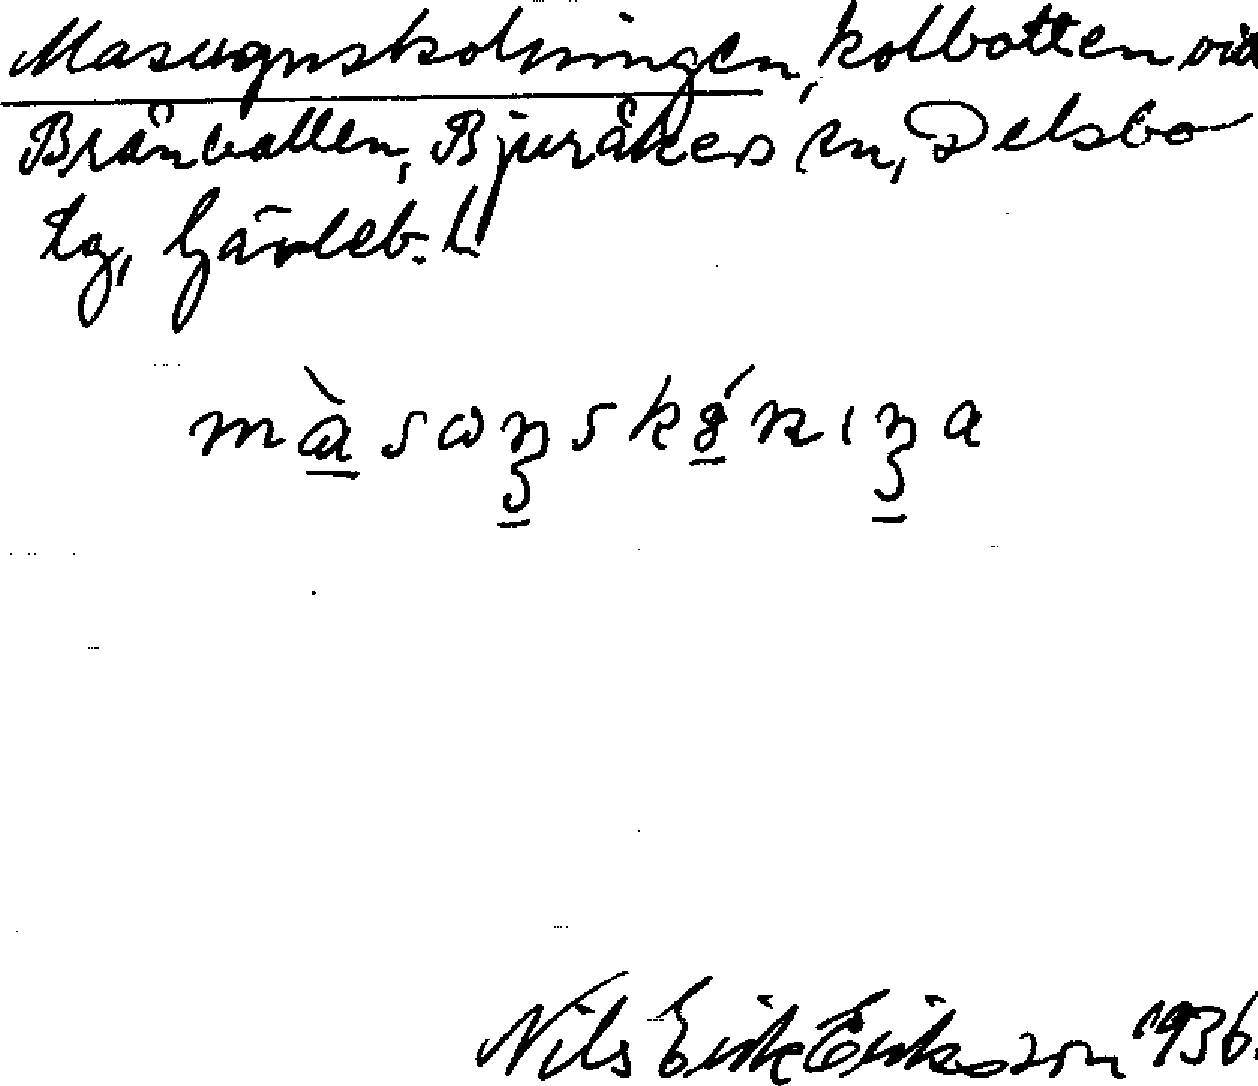 Masugnskolningen, kolbotten vid
Brånvallen, Bjuråkers sn, Delsbo
tg, Gävleb. L.
Nils Erik Eriksson 1936.